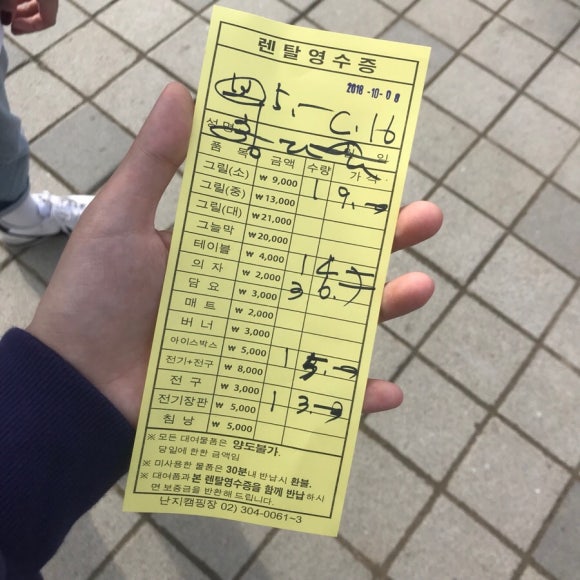 렌탈영수증
2018-10-08
5.- C.16
성명
품 목 금액 수량 가격
그릴(소) ₩ 9,000 1 9.-
그릴(중) ₩13,000
그릴(대) ₩21,000
그늘막 ₩20,000
테이블 ₩ 4,000 1 4.-
의 자 ₩ 2,000 3 6.-
담 요 ₩ 3,000
매 트 ₩ 2,000
버 너 ₩ 3,000
아이스박스 ₩ 5,000 1 5.-
전기+전구 ₩ 8,000
전 구 ₩ 3,000 1 3.-
전기장판 ₩ 5,000
침 낭 ₩ 5,000
※ 모든 대여물품은 양도불가.
당일에 한한 금액임
※ 미사용한 물품은 30분내 반납시 환불.
※ 대여품과 본 렌탈영수증을 함께 반납하시
면 보증금을 반환해 드립니다.
난지캠핑장 02) 304-0061~3